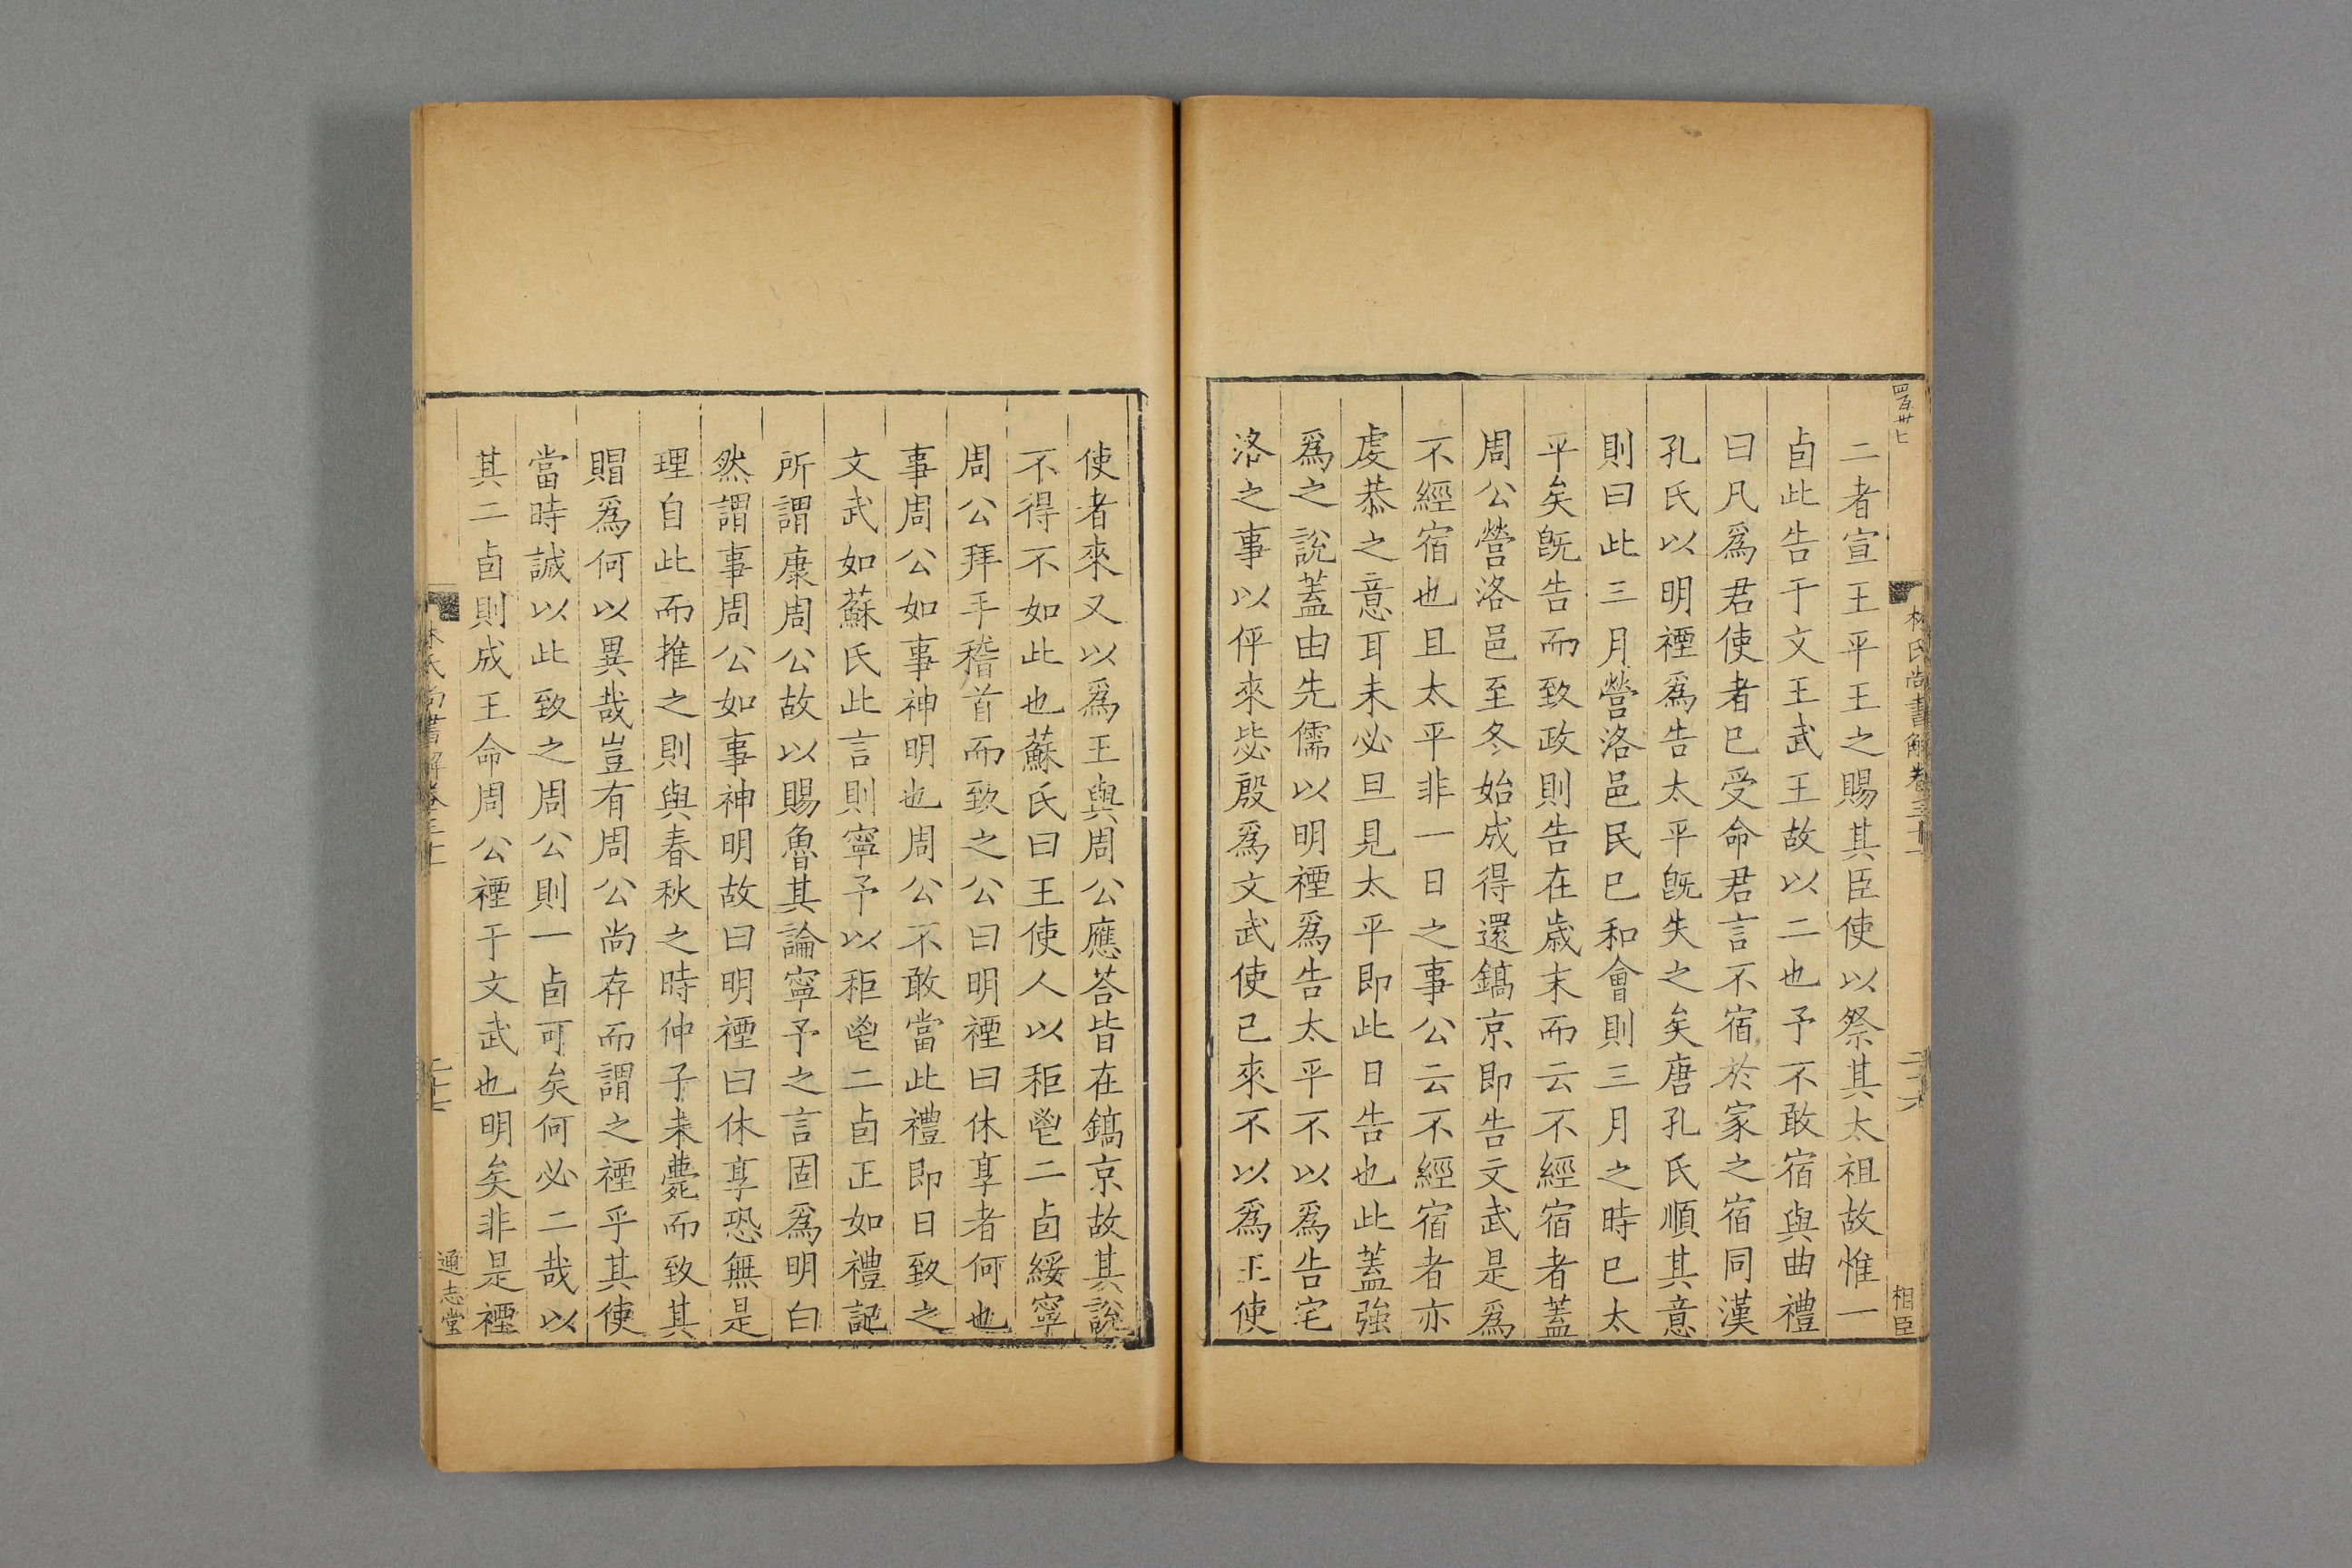 二者宣王平王之賜其臣使以祭其太祖故惟一
卣此告于文王武王故以二也予不敢宿與曲禮
曰凡爲君使者已受命君言不宿於家之宿同漢
孔氏以明禋爲告太平旣失之矣唐孔氏順其意
則曰此三月營洛邑民已和會則三月之時已太
平矣旣告而致政則告在歲末而云不經宿者蓋
周公營洛邑至冬始成得還鎬京即告文武是爲
不經宿也且太平非一日之事公云不經宿者亦
虔恭之意耳未必旦見太平即此日告也此蓋強
爲之說蓋由先儒以明禋爲告太平不以爲告宅
洛之事以伻來毖殷爲文武使已來不以爲王使
林氏尚書解卷三十一
二十六
相臣
使者來又以爲王與周公應荅皆在鎬京故其說
不得不如此也蘇氏曰王使人以秬鬯二卣綏寧
周公拜手稽首而致之公曰明禋曰休享者何也
事周公如事神明也周公不敢當此禮即日致之
文武如蘇氏此言則寧予以秬鬯二卣正如禮記
所謂康周公故以賜魯其論寧予之言固爲明白
然謂事周公如事神明故曰明禋曰休享恐無是
理自此而推之則與春秋之時仲子未薨而致其
賵爲何以異哉豈有周公尚存而謂之禋乎其使
當時誠以此致之周公則一卣可矣何必二哉以
其二卣則成王命周公禋于文武也明矣非是禋
林氏尚書解卷三十一
二十七
通志堂